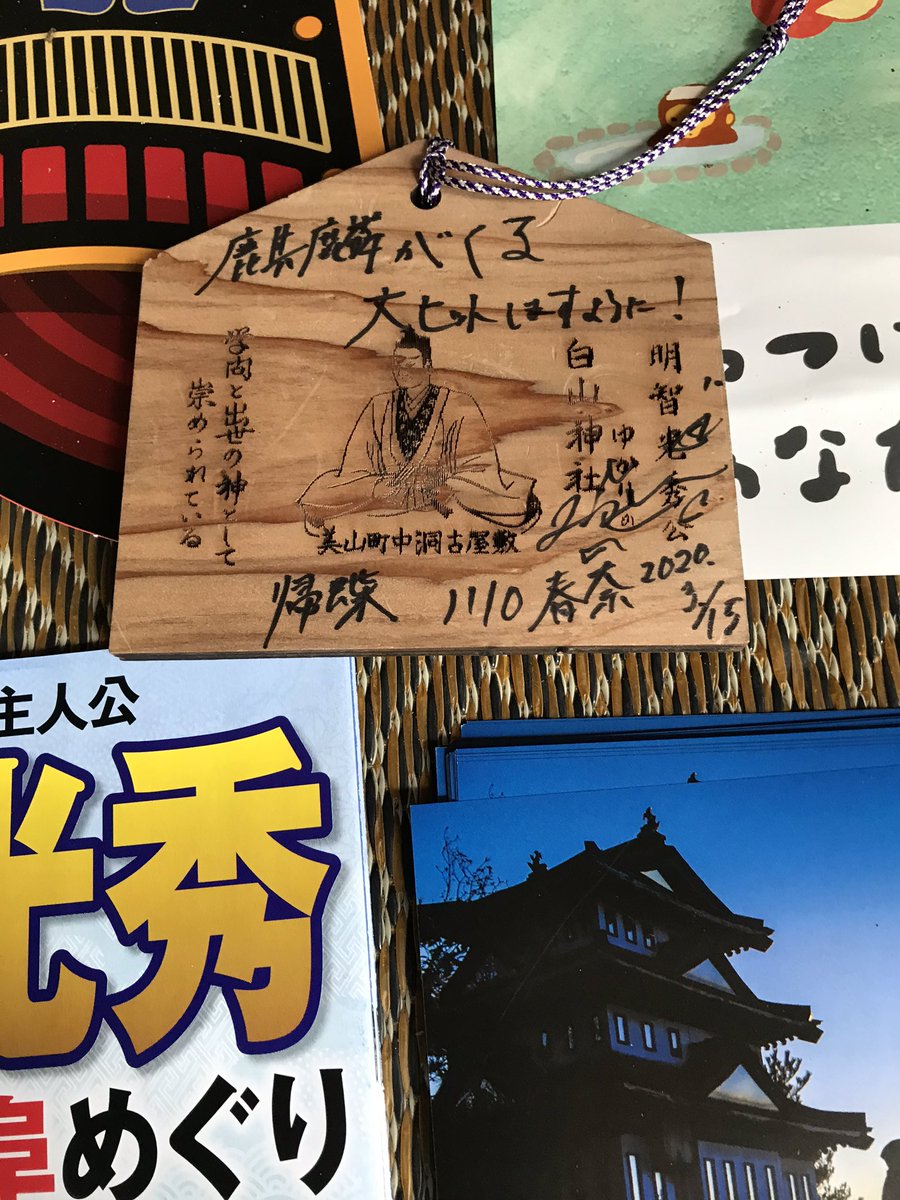 麒麟がくる
大ヒットしますように！
明智光秀公
ゆかりの
白山神社
学問と出世の神として
崇められている
美山町中洞古屋敷
帰蝶 川口春奈
2020.
3/15
つけ
あなた
主人公
光秀
阜めぐり